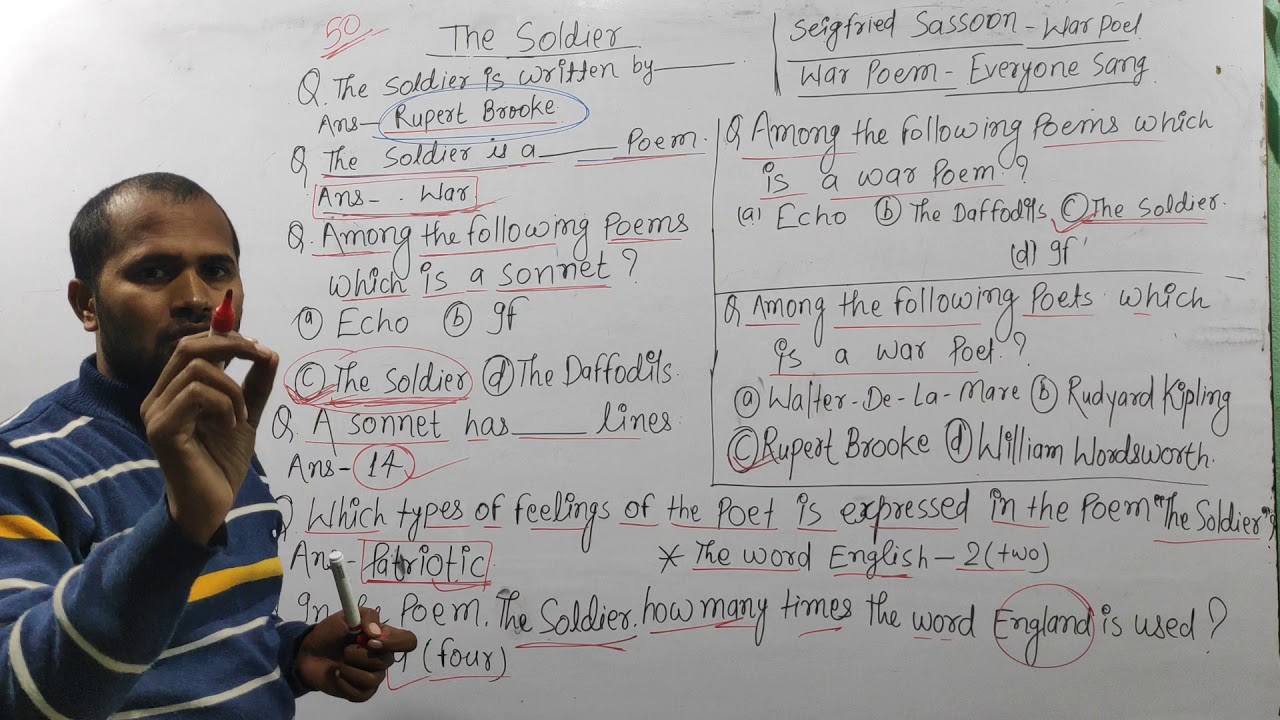 50
The Soldier
Q. The Soldier is written by ———.
Ans– Rupert Brooke
Q The Soldier is a ____ Poem.
Ans– . War
Q. Among the following Poems
which is a sonnet?
(a) Echo (b) If
(c) The Soldier (d) The Daffodils.
Q. A sonnet has ____ lines.
Ans– 14
Seigfried Sassoon – War Poet
War Poem – Everyone Sang
Q Among the following Poems which
is a war Poem?
(a) Echo (b) The Daffodils (c) The Soldier.
(d) If
Q Among the following Poets which
is a war Poet.?
(a) Walter-De-La-Mare (b) Rudyard Kipling
(c) Rupert Brooke (d) William Wordsworth.
Which types of feelings of the Poet is expressed in the Poem "The Soldier"?
Ans– Patriotic
* The word English – 2 (two)
In Poem. The Soldier. how many times the word England is used?
(four)